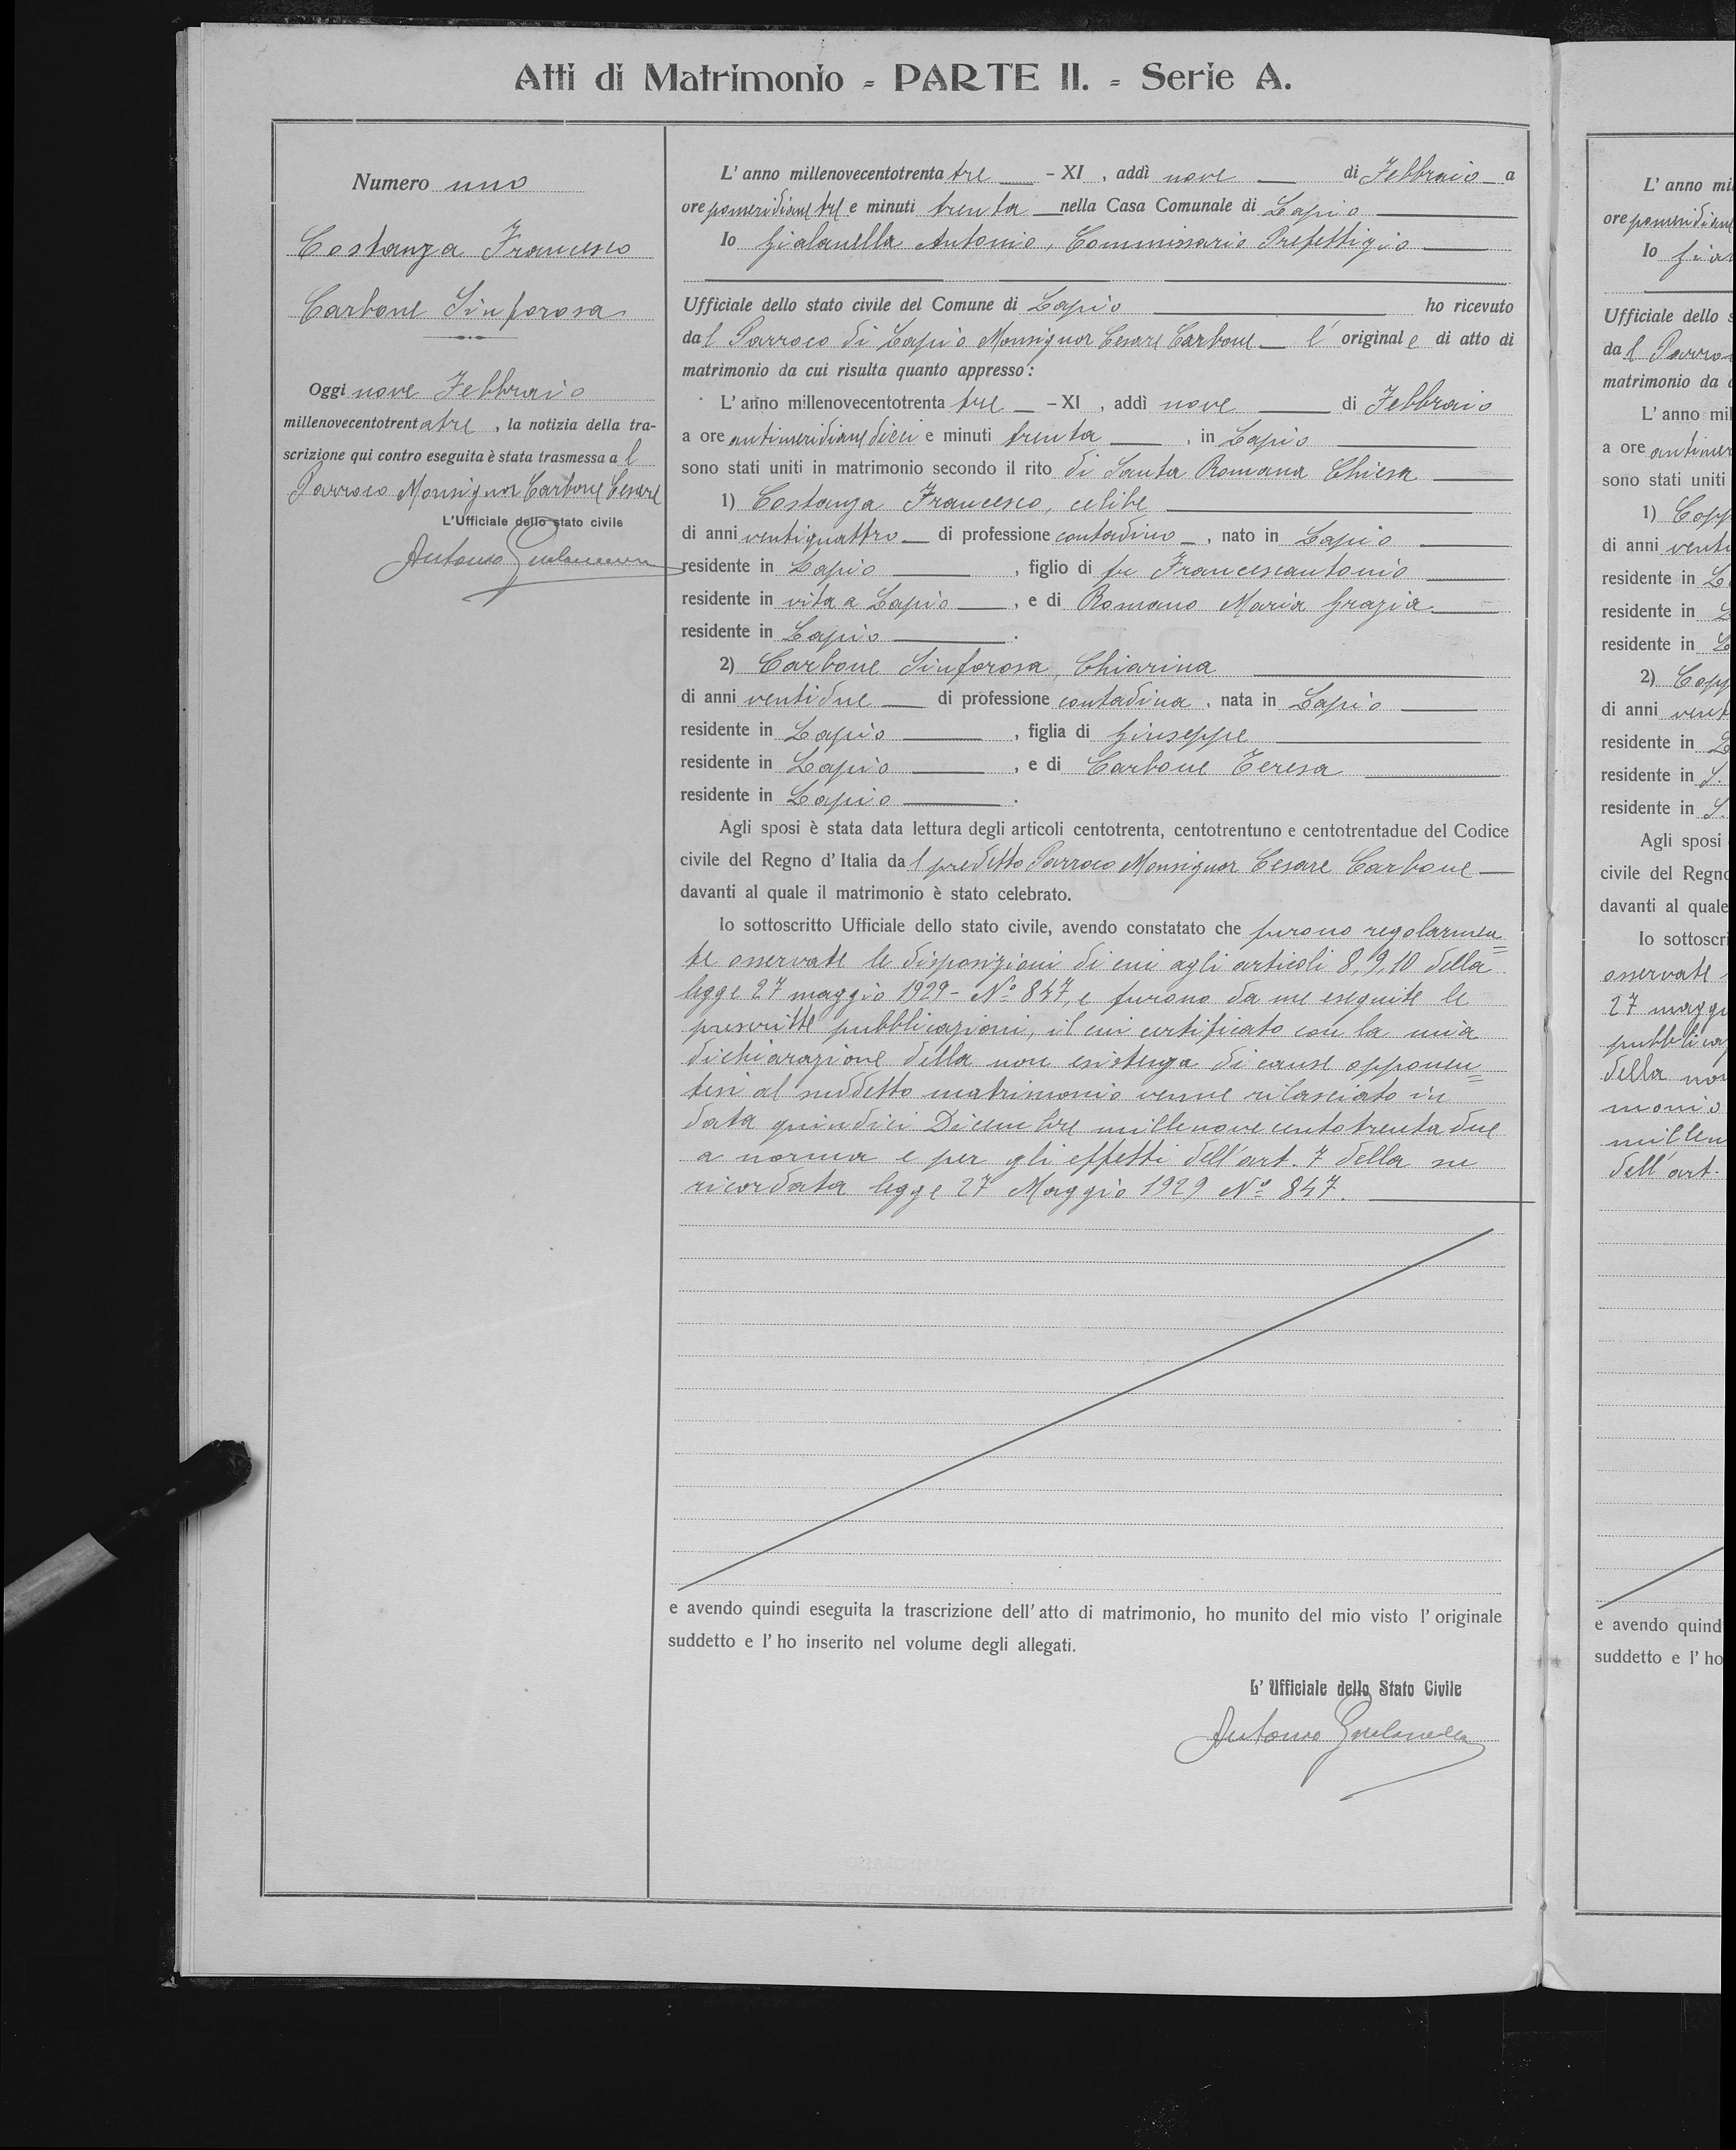 Atti di Matrimonio - PARTE II. - Serie A.
Numero uno
Costanza Francesco
Carbone Sinforosa
Oggi nove Febbraio
millenovecentotrentatre, la notizia della tra-
scrizione qui contro eseguita è stata trasmessa al
Parroco Monsignor Carbone Cesare
L'Ufficiale dello stato civile
Antonio Gialanella
L'anno millenovecentotrentatre - XI, addì nove di Febbraio a
ore pomeridiane tre e minuti trenta nella Casa Comunale di Lapio
Io Gialanella Antonio, Commissario Prefettizio
Ufficiale dello stato civile del Comune di Lapio ho ricevuto
dal Parroco di Lapio Monsignor Cesare Carbone l'originale di atto di
matrimonio da cui risulta quanto appresso:
L'anno millenovecentotrenta tre - XI, addì nove di Febbraio
a ore antimeridiane dieci e minuti trenta, in Lapio
sono stati uniti in matrimonio secondo il rito di Santa Romana Chiesa
1) Costanza Francesco, celibe
di anni ventiquattro di professione contadino, nato in Lapio
residente in Lapio, figlio di fu Francescantonio
residente in vita a Lapio, e di Romano Maria Grazia
residente in Lapio.
2) Carbone Sinforosa, Chiarina
di anni ventidue di professione contadina, nata in Lapio
residente in Lapio, figlia di Giuseppe
residente in Lapio, e di Carbone Teresa
residente in Lapio.
Agli sposi è stata data lettura degli articoli centotrenta, centotrentuno e centotrentadue del Codice
civile del Regno d'Italia dal predetto Parroco Monsignor Cesare Carbone
davanti al quale il matrimonio è stato celebrato.
Io sottoscritto Ufficiale dello stato civile, avendo constatato che furono regolarmen=
te osservate le disposizioni di cui agli articoli 8, 9, 10 della
legge 27 maggio 1929 - Nº 847, e furono da me eseguite le
prescritte pubblicazioni, il cui certificato con la mia
dichiarazione della non esistenza di cause opponen=
tesi al suddetto matrimonio venne rilasciato in
data quindici Dicembre millenovecentotrentadue
a norma e per gli effetti dell'art. 7 della su
ricordata legge 27 Maggio 1929 Nº 847.
e avendo quindi eseguita la trascrizione dell'atto di matrimonio, ho munito del mio visto l'originale
suddetto e l'ho inserito nel volume degli allegati.
L'Ufficiale dello Stato Civile
Antonio Gialanella
L'anno mi
ore pomeridiane
Io
Ufficiale dello s
dal Parro
matrimonio da
L'anno mil
a ore antimer
sono stati uniti
1) Copp
di anni venti
residente in L
residente in L
residente in L
2) Copp
di anni vent
residente in L
residente in S.
residente in S.
Agli sposi
civile del Regno
davanti al quale
Io sottoscri
osservate
27 maggi
pubblicaz
della non
monio
millen
dell'art.
e avendo quind
suddetto e l'ho